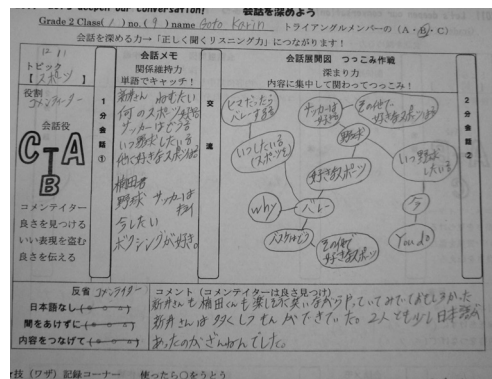 Let's deepen our conversation! 会話を深めよう
Grade 2 Class( 1 ) no.( 9 ) name Goto Karin トライアングルメンバーの (A・B・C)
会話を深める力→「正しく聞くリスニング力」につながります!
12/11
トピック
【スポーツ】
役割
コメンテーター
会話役
C A
T
B
コメンテイター
良さを見つける
いい表現を盗む
良さを伝える
1分会話①
会話メモ
関係維持力
単語でキャッチ!
新舟さん ねむたい
何のスポーツ好き
サッカーはどう
野球したいる
他に好きなスポーツは
植田君
野球 サッカーは
今したい
ボクシングが好き。
交流
会話展開図 つっこみ作戦
深まり力
内容に集中して関わってつっこみ!
ヒマだったらバレーする
いつしたいる
サッカーは好き
その他で好きなスポーツは
野球
好きなスポーツ
いつ野球したいる
why
バレー
今
You do
その他で好きなスポーツ
2分会話②
反省 コメンテイター
日本語なし
間をあけずに
内容をつなげて
コメント (コメンテイターは良さ見つけ)
新舟さんも植田くんも楽しそに笑いながらやっていてみていておもしろかった
新舟さんは多くしつもんができていた。2人とも少し日本語が
あったのがざんねんでした。
技(ワザ)記録コーナー 使ったら○をうとう